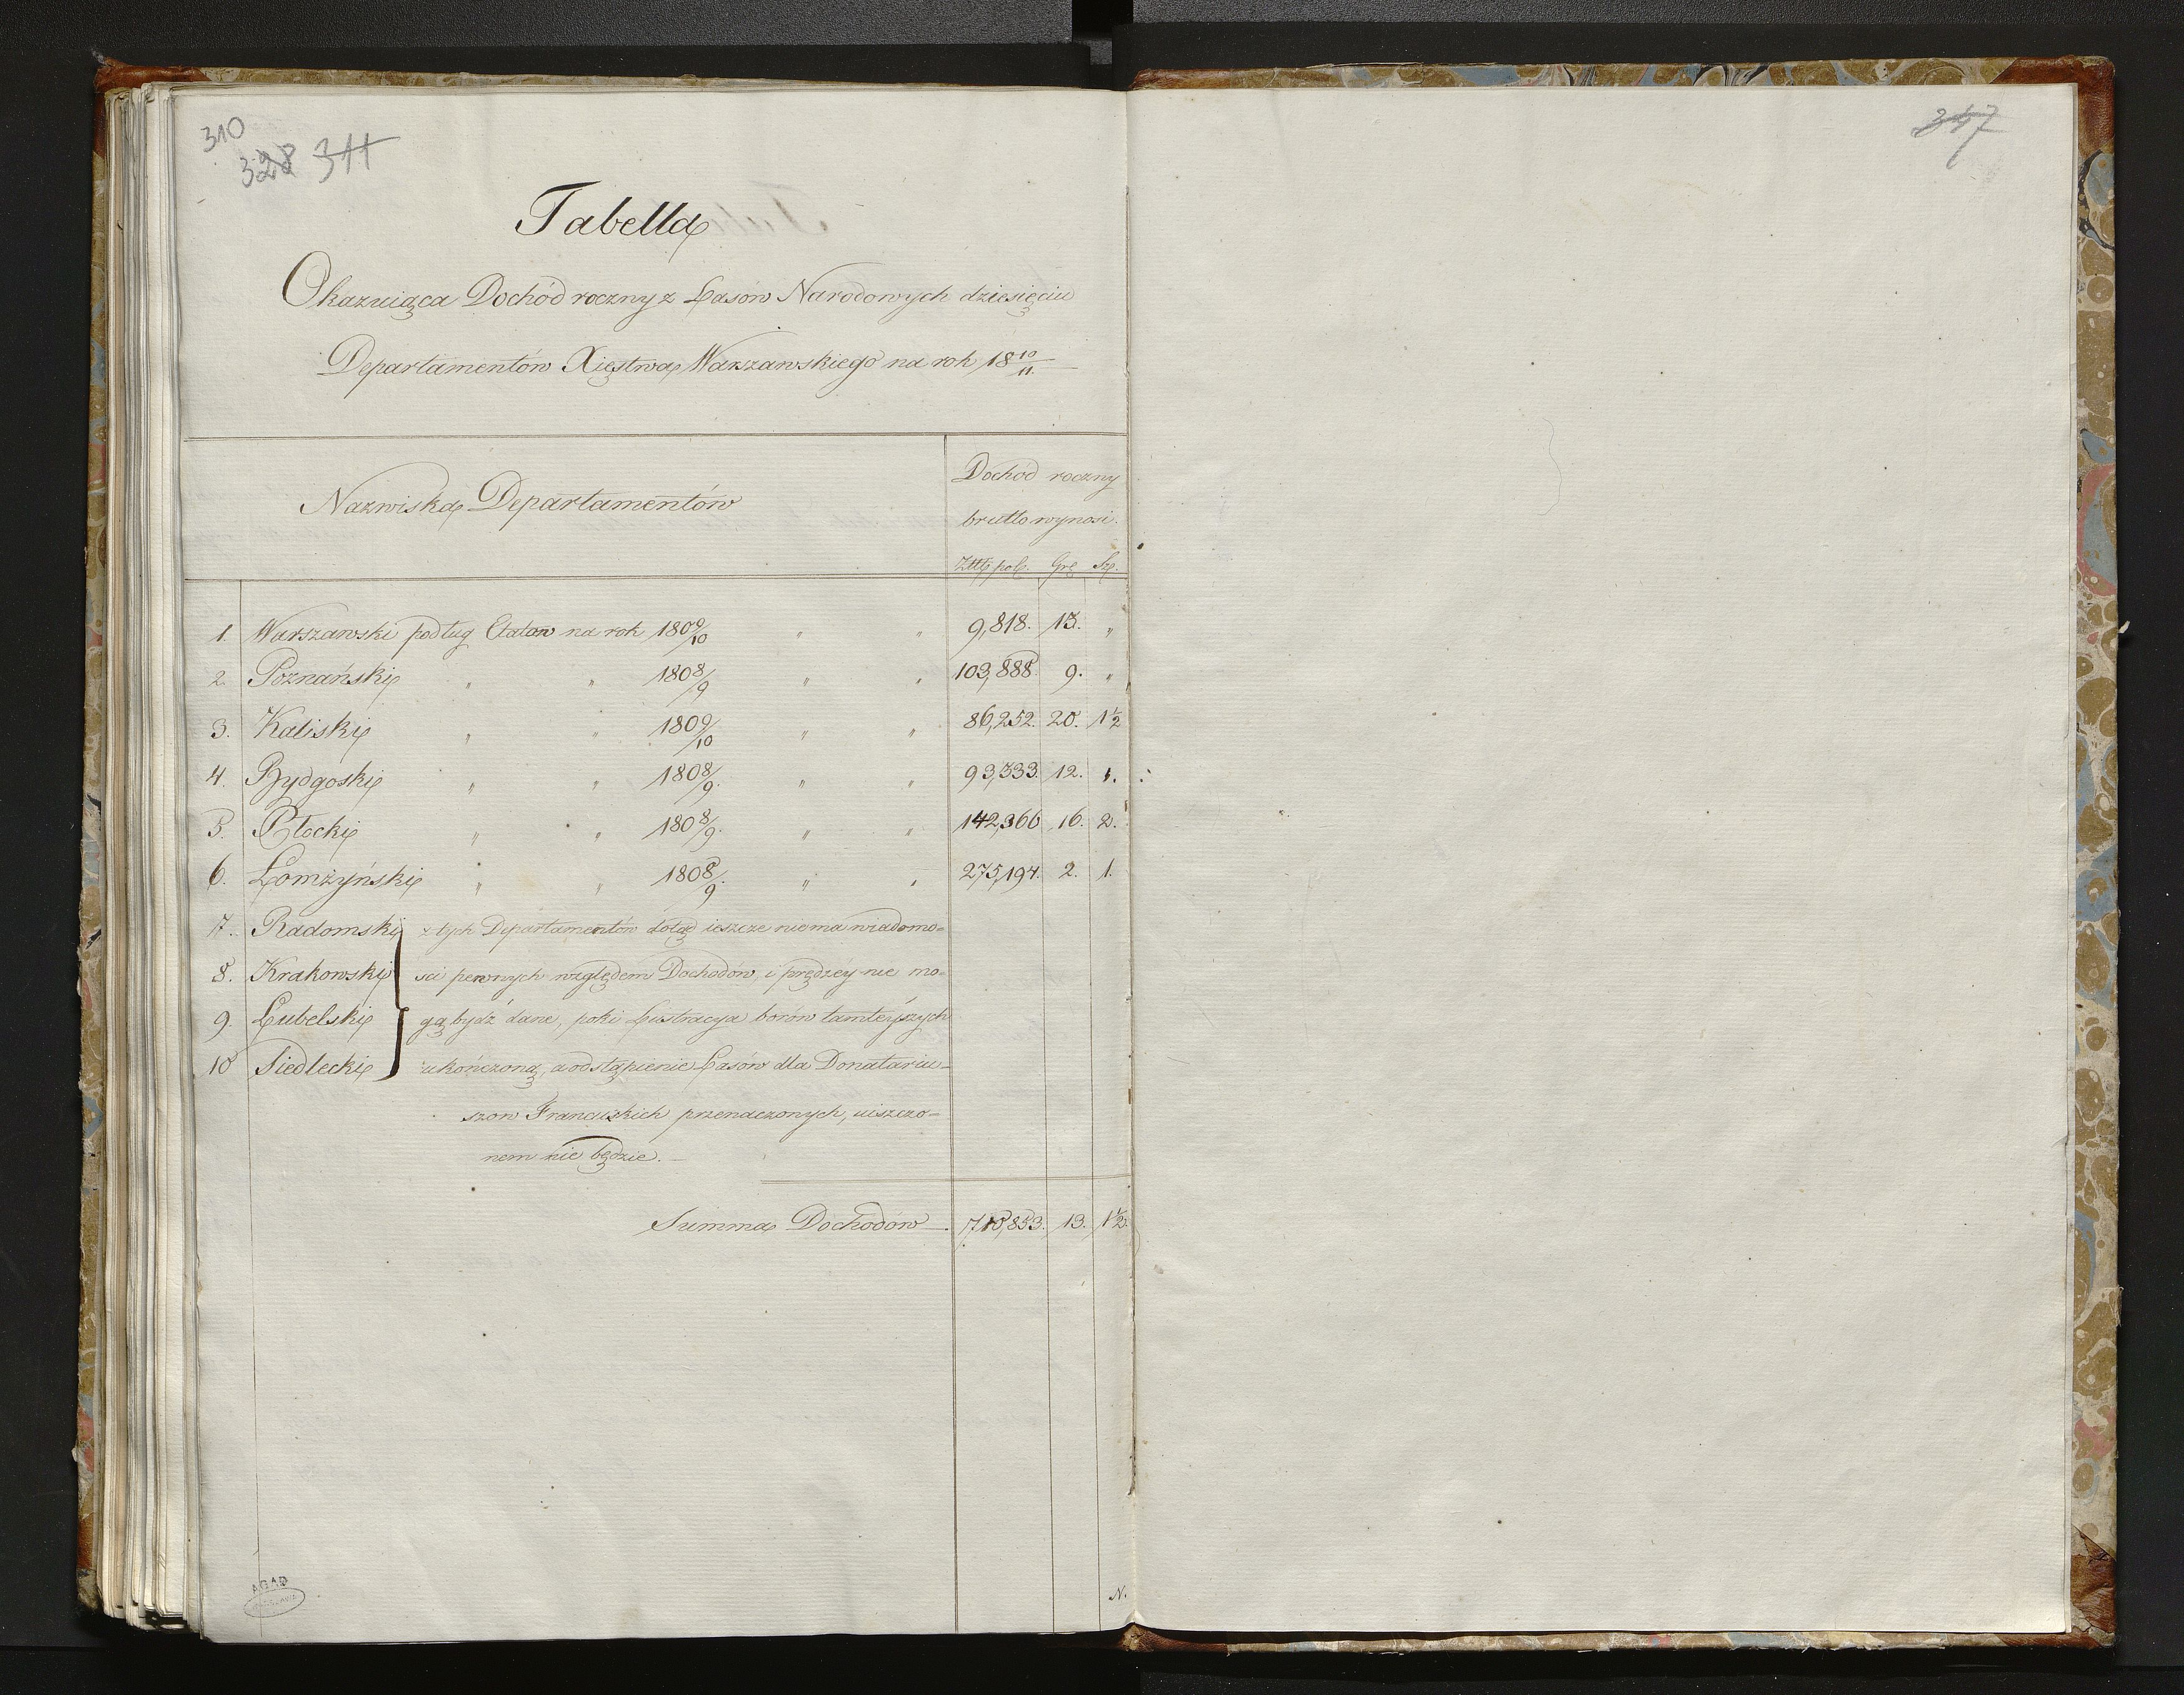 310
328 311
347
Tabella
Okazuiąca Dochód roczny z Lasów Narodowych dziesięciu
Departamentów Xięstwa Warszawskiego na rok 18 10/11.
Nazwiska Departamentów
Dochod roczny
brutto wynosi.
Złł pol. Gr. Sz.
1. Warszawski podług Etatow na rok 1809/10 " " 9,818. 13. "
2. Poznański " " 1808/9 " " 103,888 9. "
3. Kaliski " " 1809/10 " " 86,252. 20. 1 1/2
4. Bydgoski " " 1808/9. " " 93,333. 12. ".
5. Płocki " " 1808/9. " " 142,366 16. 2.
6. Łomżyński " " 1808/9. " " 275,194. 2. 1.
7. Radomski z tych Departamentów dotąd ieszcze niema wiadomo=
8. Krakowski sci pewnych względem Dochodów, i prędzéy nie mo=
9. Lubelski gą bydź dane, poki Lustracya borów tamtéyszych
10 Siedlecki ukończoną, a odstąpienie Lasów dla Donatariu=
szow Francuzkich przenaczonych, uiszczo=
nem nie będzie.
Summa Dochodów 710,853. 13. 1 1/2.
N.
AGAD